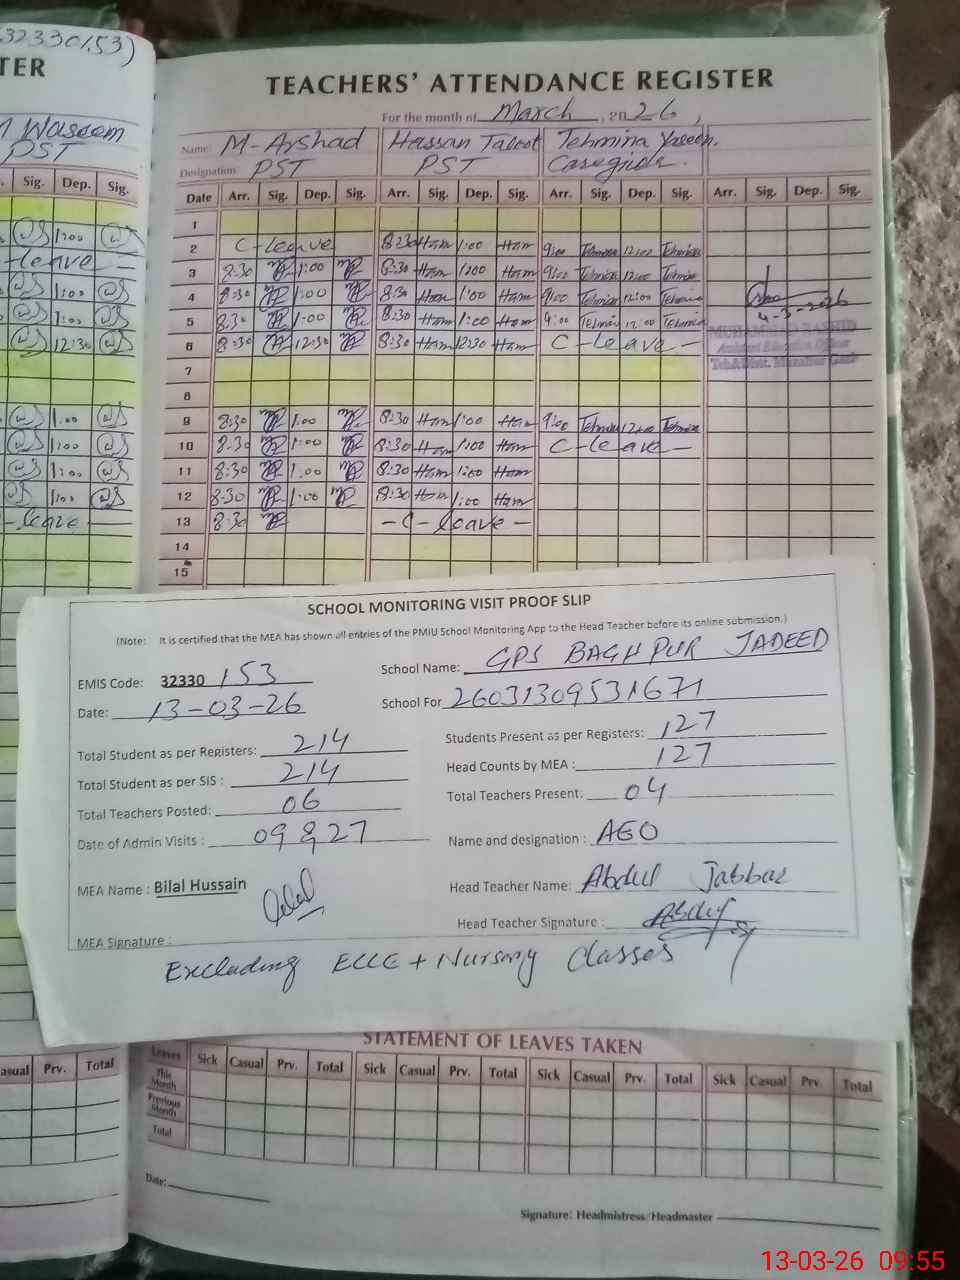 32330153)
TER
TEACHERS' ATTENDANCE REGISTER
For the month of March, 2026,
Waseem
PST
Name: M-Arshad Hassan Tehmina
Designation PST PST
Sig. Dep. Sig.
Date Arr. Sig. Dep. Sig. Arr. Sig. Dep. Sig. Arr. Sig. Dep. Sig. Arr. Sig. Dep. Sig.
1
1:00 2 C-leave 8:30 Ham 1:00 Ham 9:00 Tehmina 12:00 Tehmina
-leave- 3 8:30 1:00 8:30 Ham 1:00 Ham 9:00 Tehmina 12:00 Tehmina
1:00 4 8:30 1:00 8:30 Ham 1:00 Ham 9:00 Tehmina 12:00 Tehmina
4-3-2026
1:00 5 8:30 1:00 8:30 Ham 1:00 Ham 9:00 Tehmina 12:00 Tehmina
MUHAMMAD RASHID
Assistant Education Officer
12:30 6 8:30 12:30 8:30 Ham 12:30 Ham C-leave-
7
8
1:00 9 8:30 1:00 8:30 Ham 1:00 Ham 9:00 Tehmina 12:00 Tehmina
1:00 10 8:30 1:00 8:30 Ham 1:00 Ham C-leave-
1:00 11 8:30 1:00 8:30 Ham 1:00 Ham
1:00 12 8:30 1:00 8:30 Ham 1:00 Ham
-leave 13 8:30 -C-leave-
14
15
SCHOOL MONITORING VISIT PROOF SLIP
(Note: It is certified that the MEA has shown all entries of the PMIU School Monitoring App to the Head Teacher before its online submission.)
EMIS Code: 32330 153 School Name: GPS BAGHPUR JADEED
Date: 13-03-26 School For 26031309531671
Total Student as per Registers: 214 Students Present as per Registers: 127
Total Student as per SIS : 214 Head Counts by MEA : 127
Total Teachers Posted: 06 Total Teachers Present: 04
Date of Admin Visits : 09 & 27 Name and designation : AEO
MEA Name : Bilal Hussain Head Teacher Name: Abdul Jabbar
MEA Signature : Head Teacher Signature :
Excluding ECCE + Nursery Classes
STATEMENT OF LEAVES TAKEN
asual Prv. Total
Leaves Sick Casual Prv. Total Sick Casual Prv. Total Sick Casual Prv. Total Sick Casual Prv. Total
This Month
Previous Month
Total
Date:
Signature: Headmistress/Headmaster
13-03-26 09:55